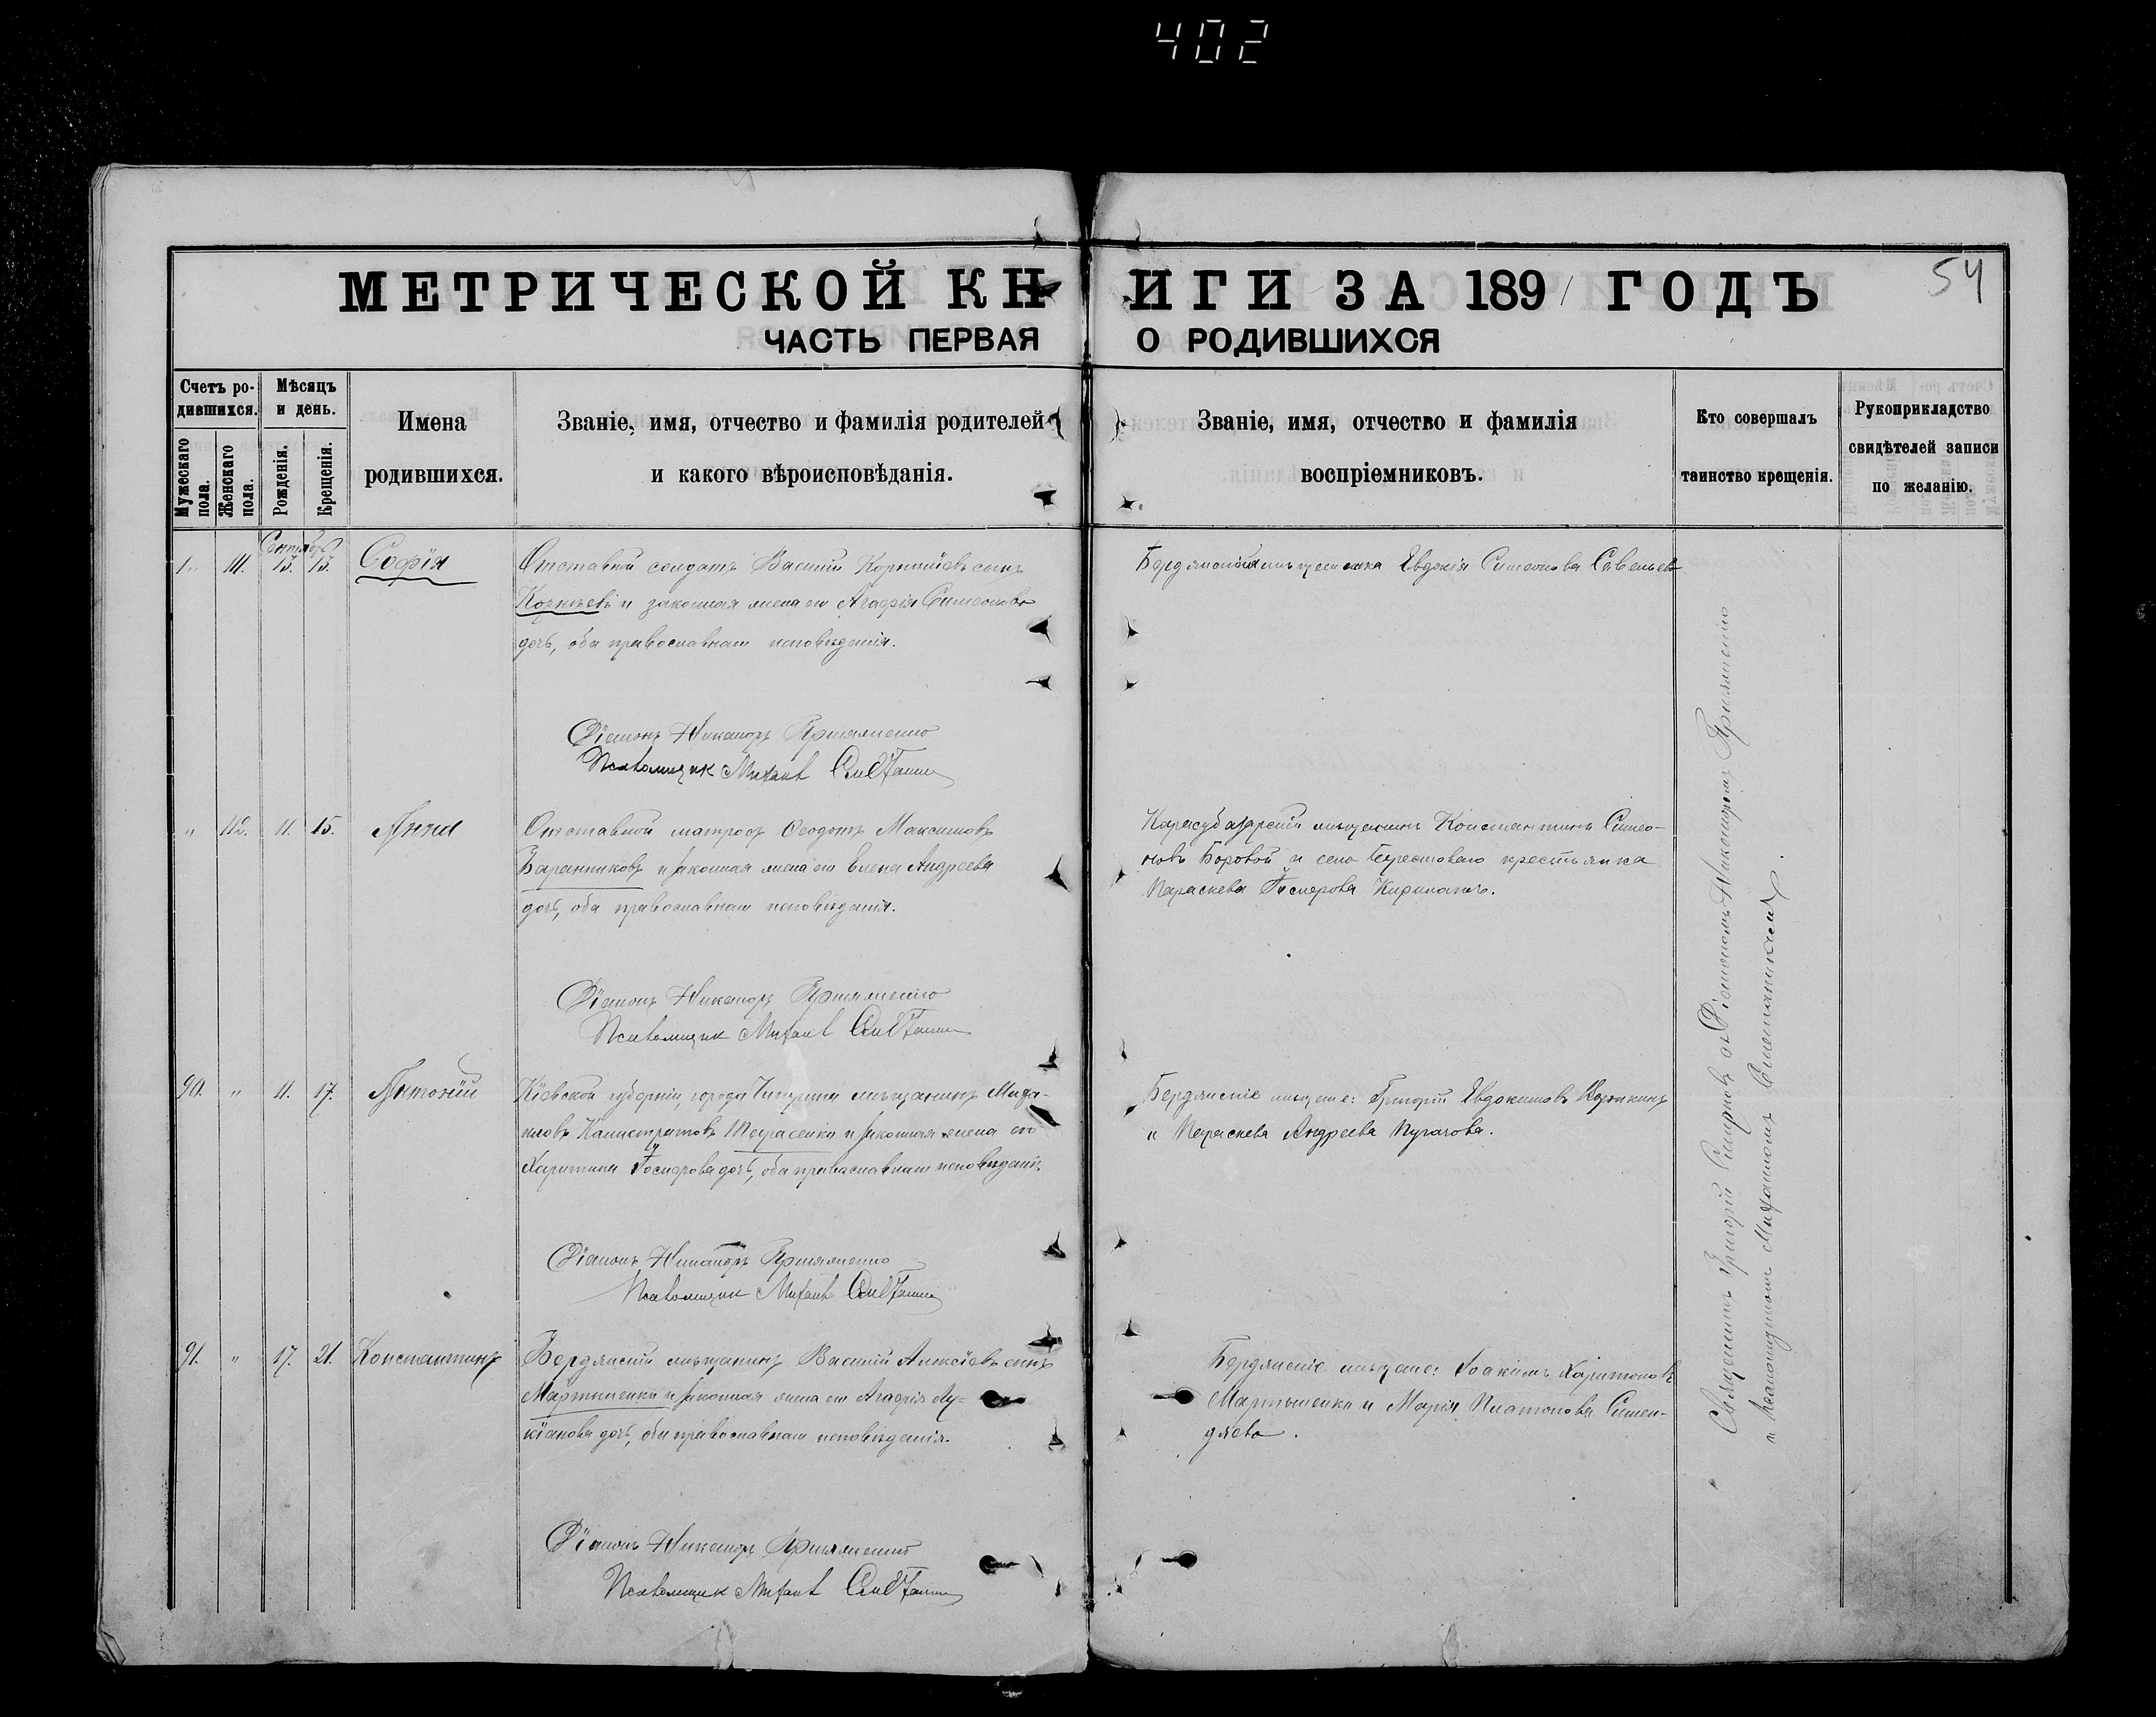 402
54
МЕТРИЧЕСКОЙ КНИГИ ЗА 1891 ГОДЪ
ЧАСТЬ ПЕРВАЯ О РОДИВШИХСЯ
Счетъ ро-
дившихся.
Мужескаго
пола.
Женскаго
пола.
Мѣсяцъ
и день.
Рожденія.
Крещенія.
Имена
родившихся.
Званіе, имя, отчество и фамилія родителей
и какого вѣроисповѣданія.
Званіе, имя, отчество и фамилія
воспріемниковъ.
Кто совершалъ
таинство крещенія.
Рукоприкладство
свидѣтелей записи
по желанію.
111. 13. 15. Софія
Отставной солдатъ Василій Корнѣевъ сынъ
Корнѣевъ и законная жена его Агафія Симеонова
дочь, оба православнаго исповѣданія.
мѣщанка Евдокія Симеонова
Діаконъ Никаноръ
Псаломщикъ Михаилъ
" 112. 11. 15. Анна
Отставной матросъ Ѳеодотъ Максимовъ
Баранниковъ и законная жена его Елена Андреева
дочь, оба православнаго исповѣданія.
Карасубазарскій мѣщанинъ Константинъ Симео-
новъ Боровой и села крестьянка
Параскева
Діаконъ Никаноръ
Псаломщикъ Михаилъ
90. " 11. 17. Антоній
Кіевской губерніи, города Чигирина мѣщанинъ Миха-
иловъ Калистратовъ Тарасенко и законная жена его
Харитина дочь, оба православнаго исповѣданія
Бердянскіе мѣщане: Григорій Евдокимовъ
и Параскева Андреева Пугачова.
Діаконъ Никаноръ
Псаломщикъ Михаилъ
91. " 17. 21. Константинъ
Бердянскій мѣщанинъ Василій Алексіевъ сынъ
Мартыненко и законная жена его Агафія Лу-
кіанова дочь, оба православнаго исповѣданія.
Бердянскіе мѣщане: Іоакимъ Харитоновъ
Мартыненко и Марія Платонова
Діаконъ Никаноръ
Псаломщикъ Михаилъ
Священникъ Григорій съ Діакономъ Никаноромъ
и псаломщикомъ Михаиломъ